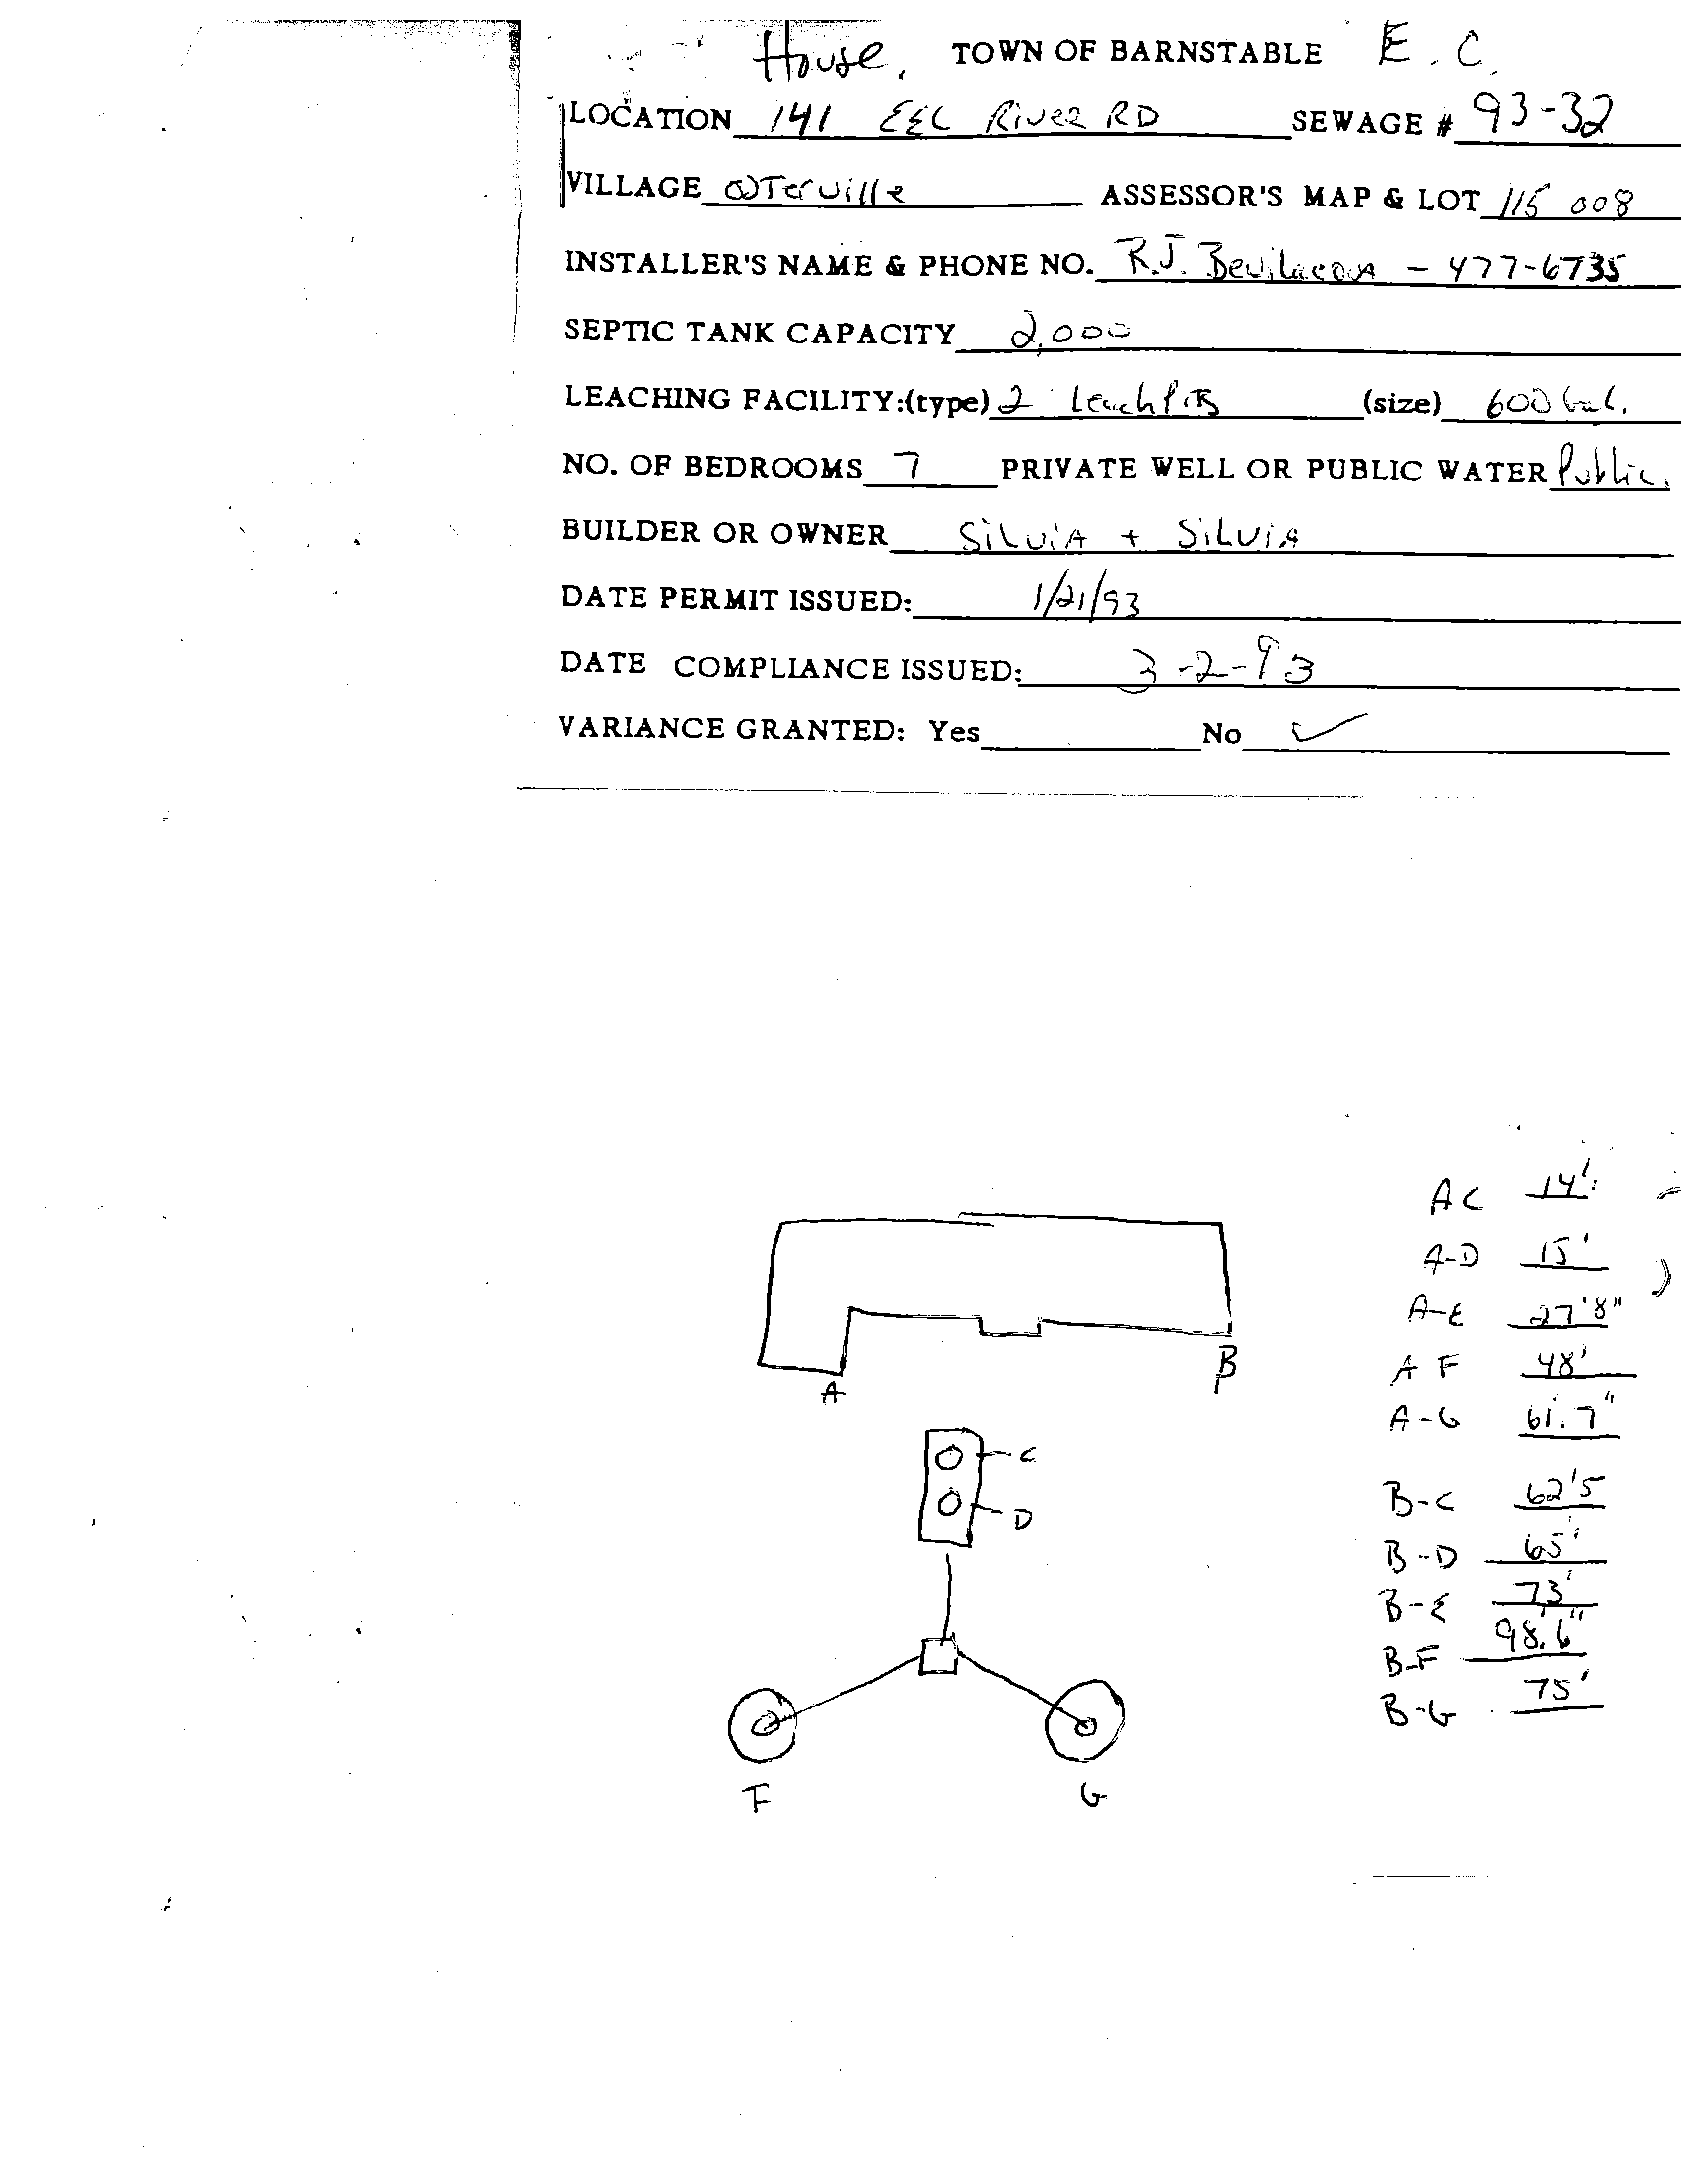 House. TOWN OF BARNSTABLE E.C.
LOCATION 141 EEL River RD SEWAGE # 93-32
VILLAGE OSTerville ASSESSOR'S MAP & LOT 115 008
INSTALLER'S NAME & PHONE NO. R.J. Bevilacqua - 477-6735
SEPTIC TANK CAPACITY 2,000
LEACHING FACILITY:(type) 2 Leach Pits (size) 600 Gal.
NO. OF BEDROOMS 7 PRIVATE WELL OR PUBLIC WATER Public.
BUILDER OR OWNER SiLviA + SiLviA
DATE PERMIT ISSUED: 1/21/93
DATE COMPLIANCE ISSUED: 3-2-93
VARIANCE GRANTED: Yes No ✓
A C 14'
A-D 15'
A-E 27'8"
A F 48'
A-G 61.7"
B-C 62'5
B-D 65'
B-E 73'
B-F 98.6"
B-G 75'
A
B
C
D
F
G